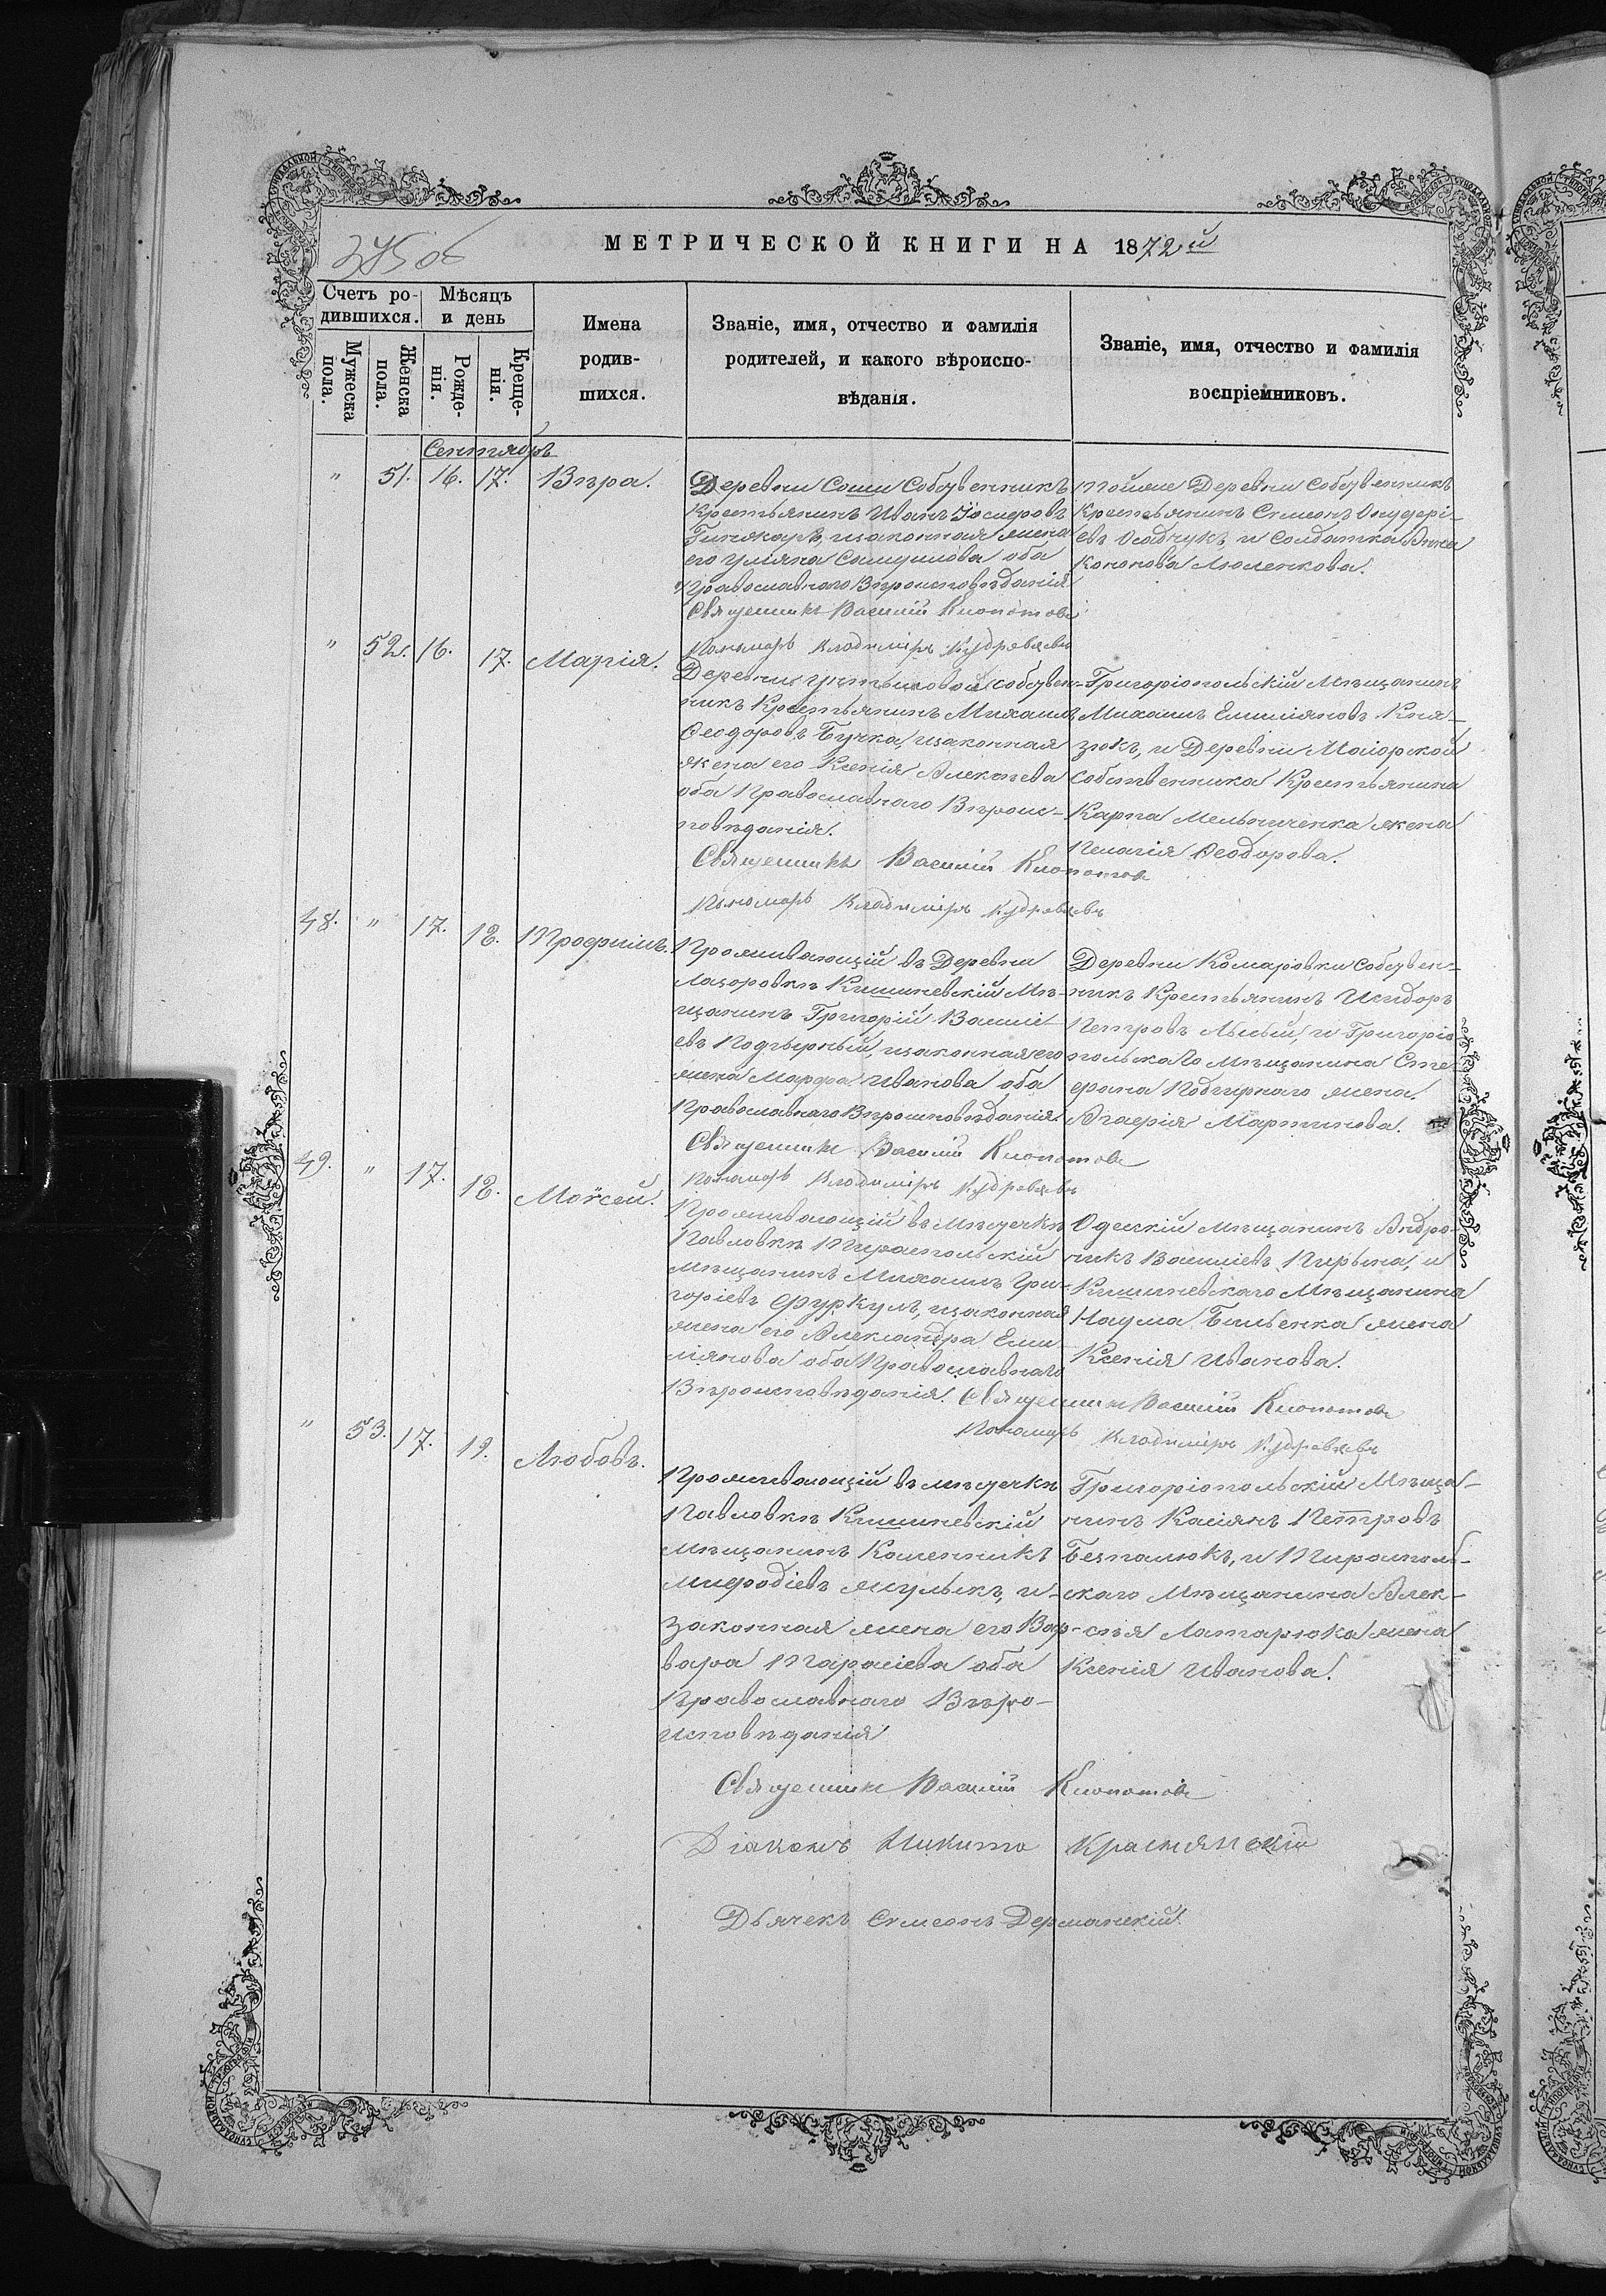 МЕТРИЧЕСКОЙ КНИГИ НА 1872й
345 об
Счетъ ро-
дившихся.
Мужеска пола.
Женска пола.
Мѣсяцъ
и день
Рожде-
нія.
Креще-
нія.
Имена
родив-
шихся.
Званіе, имя, отчество и фамилія
родителей, и какого вѣроиспо-
вѣданія.
Званіе, имя, отчество и фамилія
воспріемниковъ.
Сентябрь
" 51. 16. 17. Вѣра.
Деревни Соши Собственникъ
Крестьянинъ Иванъ
и законная жена
его Ульяна оба
Православнаго Вѣроисповѣданія
Священникъ Василій Клопотовъ
Пономарь Владиміръ Кудрявцевъ
Тойже Деревни Собственникъ
Крестьянинъ Симеонъ
евъ Осадчукъ, и Солдатка Анна
Кононова Люленкова.
" 52. 16. 17. Марія.
Деревни собствен-
никъ Крестьянинъ Михаилъ
Ѳеодоровъ Бучка, изаконная
жена его Ксенія Алексѣева
оба Православнаго Вѣроис-
повѣданія.
Священникъ Василій Клопотовъ
Пономарь Владиміръ Кудрявцевъ
Григоріопольскій Мѣщанинъ
Михаилъ Емиліяновъ Кня-
зюкъ, и Деревни Маіорской
Собственника Крестьянина
Карпа Мельниченка жена
Пелагія Ѳеодорова.
48. " 17. 18. Трофимъ.
Проживающій въ Деревни
Лазоровкѣ Кишиневскій Мѣ-
щанинъ Григорій Василі-
евъ Подгирный, изаконная его
жена Марфа Иванова оба
Православнаго Вѣроисповѣданія.
Священникъ Василій Клопотовъ
Пономарь Владиміръ Кудрявцевъ
Деревни Комаровки Собствен-
никъ Крестьянинъ Исидоръ
Петровъ Лысый, и Григоріо
польскаго Мѣщанина Сте-
фана Подгирнаго жена
Агафія Мартинова.
49. " 17. 18. Моѵсей.
Проживающій въ Мѣстечкѣ
Павловкѣ Тираспольскій
Мѣщанинъ Михаилъ Гри-
горіевъ Фуркулъ, изаконная
жена его Александра Еми-
ліянова оба Православнаго
Вѣроисповѣданія. Священникъ Василій Клопотовъ
Пономарь Владиміръ Кудрявцевъ
Одесскій мѣщанинъ Андро-
никъ Василіевъ Пирьина, и
Кишиневскаго Мѣщанина
Наума Бильенка жена
Ксенія Иванова.
" 53. 17. 19. Любовь.
Проживающій въ мѣстечкѣ
Павловкѣ Кишиневскій
Мѣщанинъ Каленникъ
Мифодіевъ Жулыкъ, и
законная жена его Вар-
вара Тарасіева оба
Православнаго Вѣро-
исповѣданія
Григоріопольскій Мѣща-
нинъ Касіянъ Петровъ
Безпалюкъ, и Тирасполь-
скаго Мѣщанина Алек-
сѣя Латарюка жена
Ксенія Иванова.
Священникъ Василій Клопотовъ
Діаконъ Никита Краснянскій
Дьячекъ Симеонъ Дерманскій